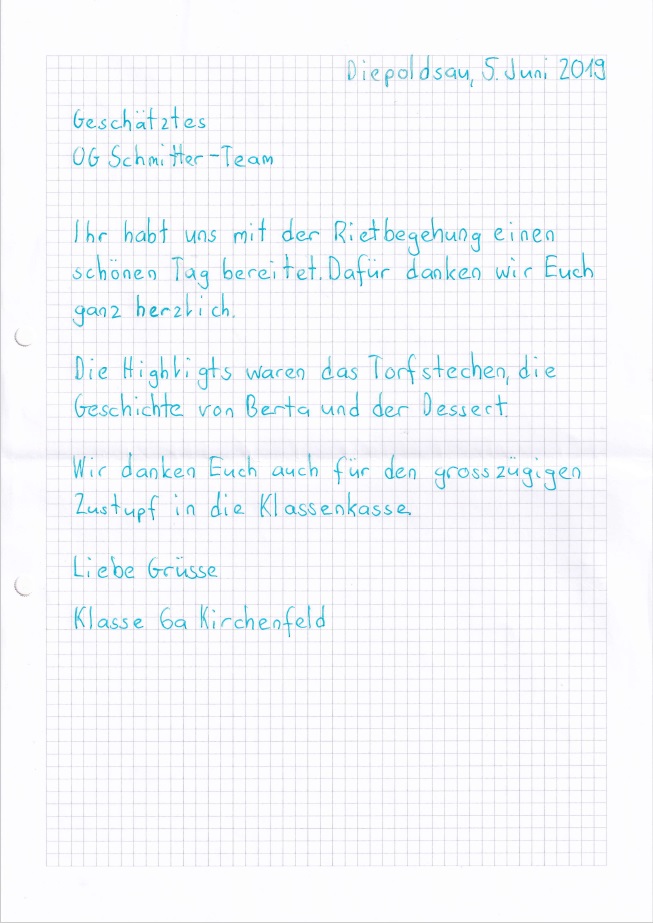 Diepoldsau, 5. Juni 2019
Geschätztes
OG Schmitter-Team
Ihr habt uns mit der Rietbegehung einen
schönen Tag bereitet. Dafür danken wir Euch
ganz herzlich.
Die Highligts waren das Torfstechen, die
Geschichte von Berta und der Dessert.
Wir danken Euch auch für den grosszügigen
Zustupf in die Klassenkasse.
Liebe Grüsse
Klasse 6a Kirchenfeld